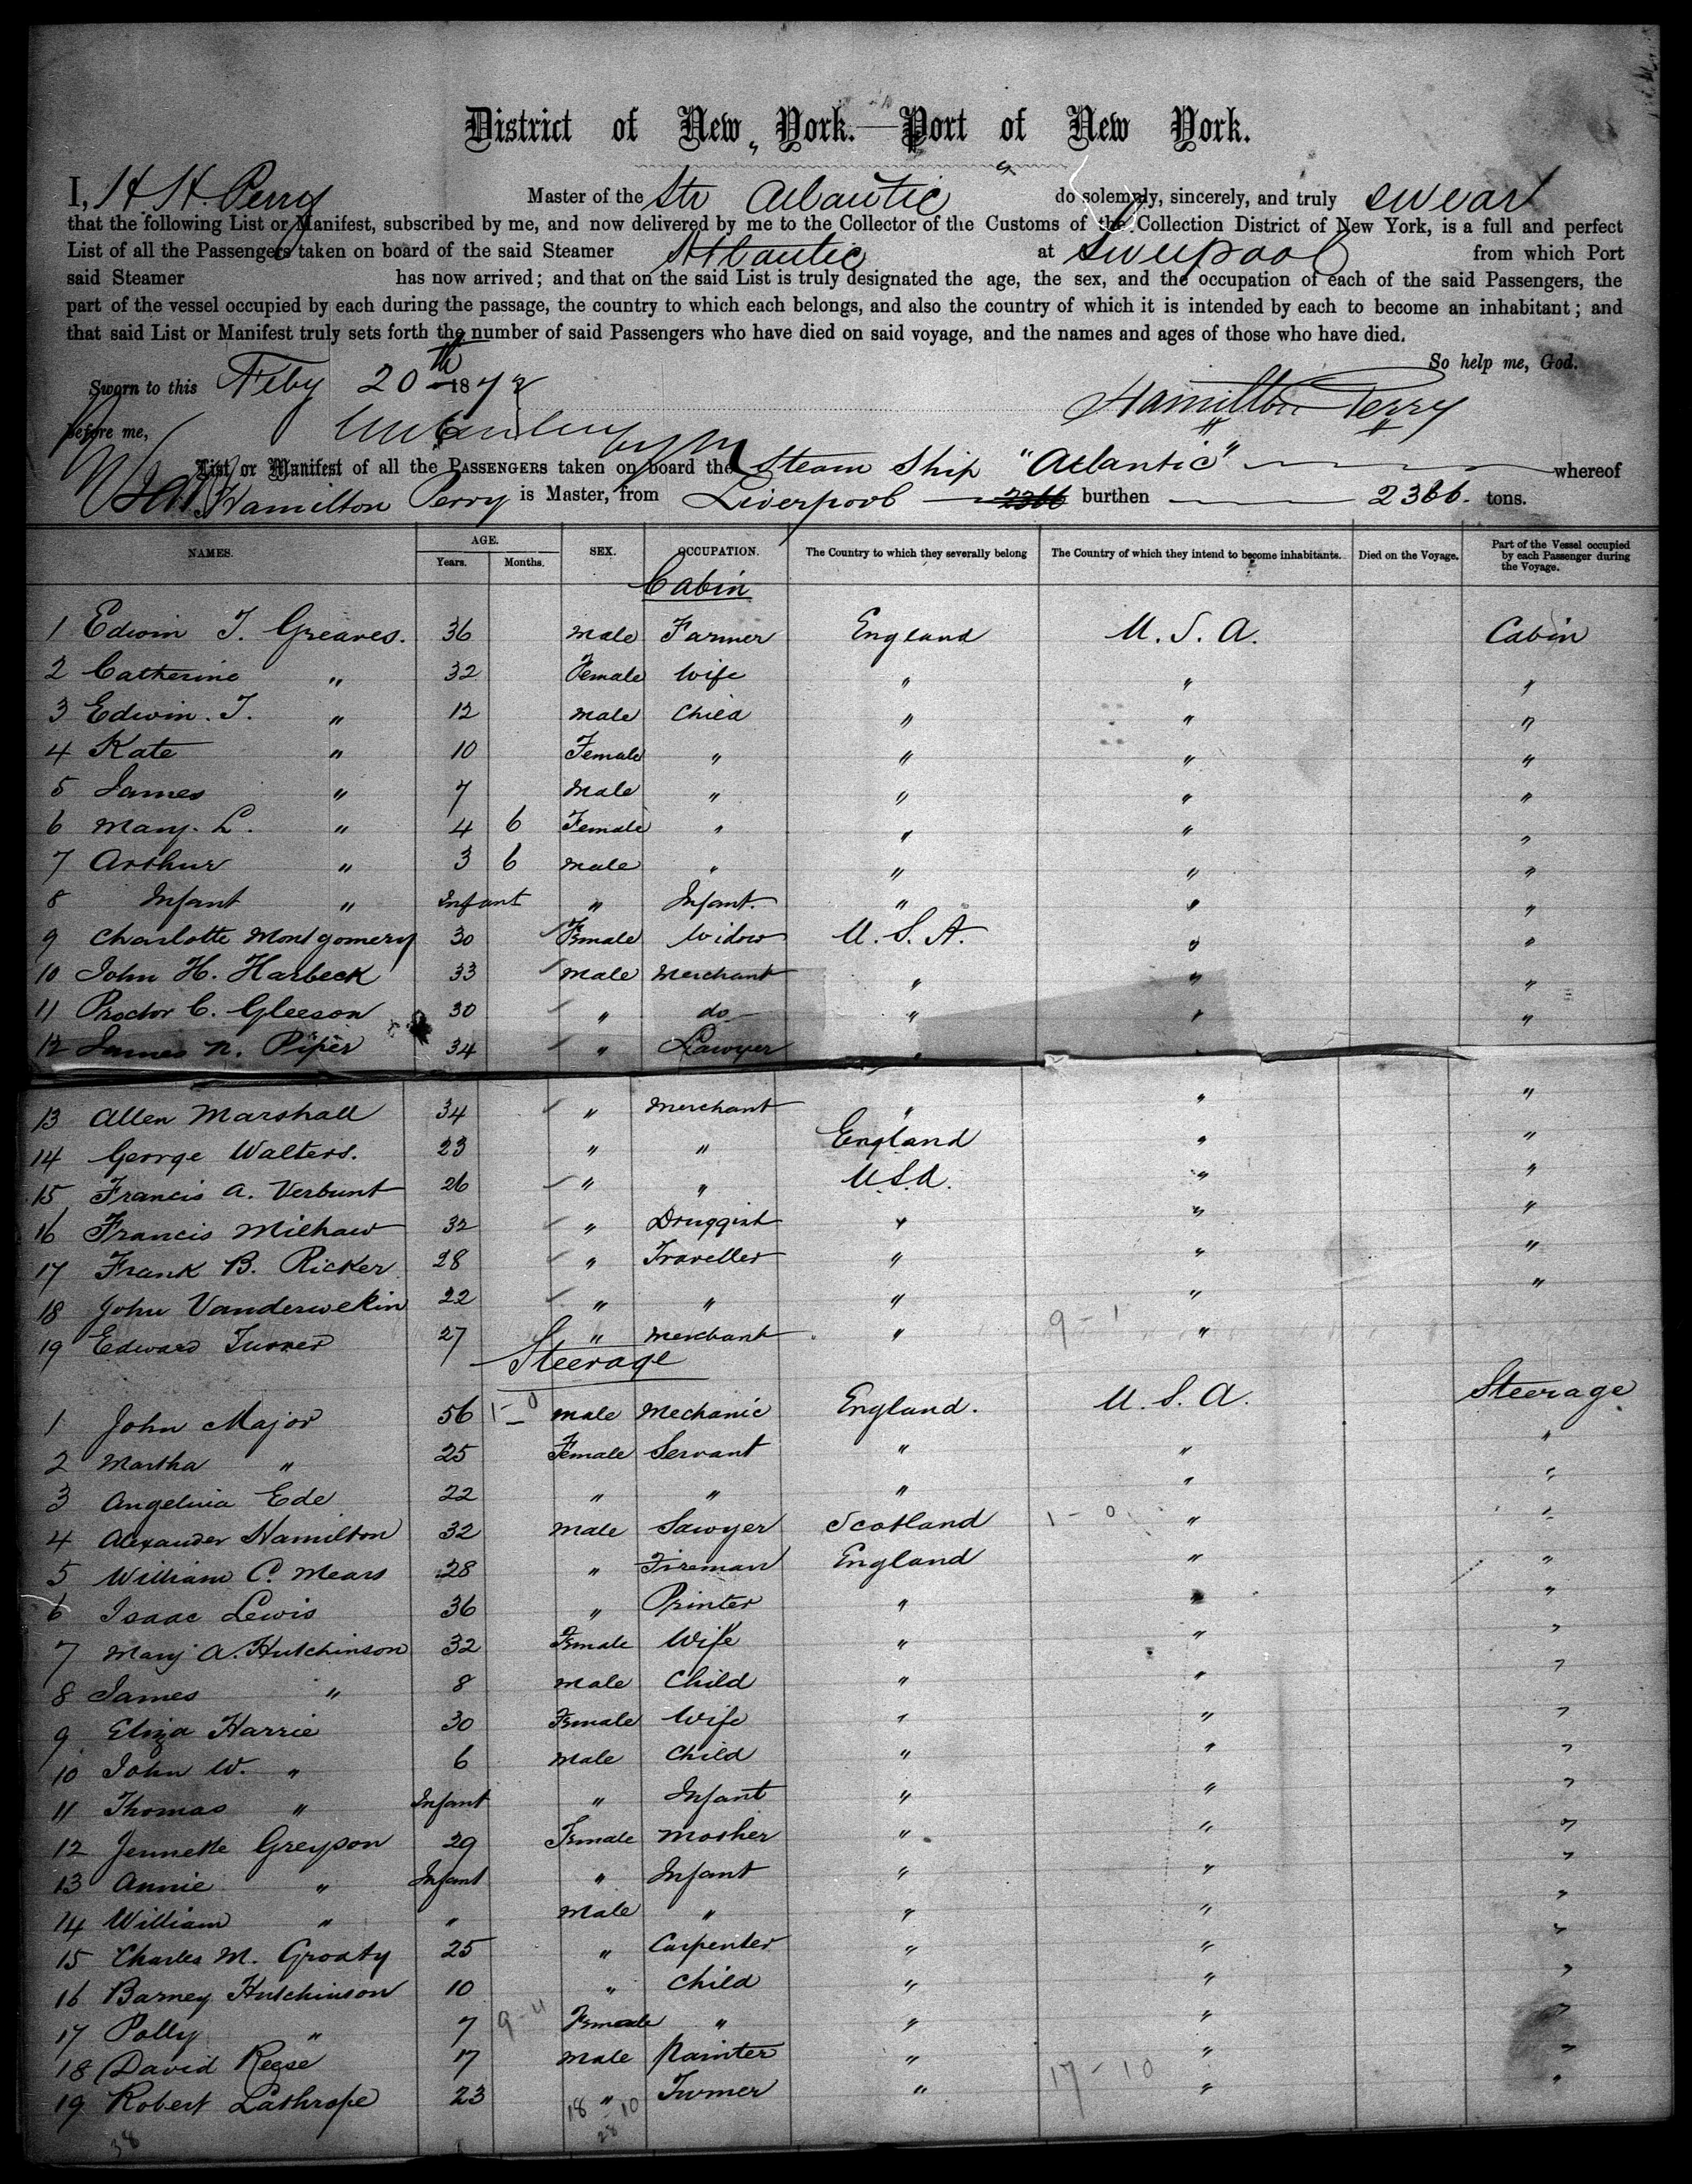 District of New York.—Port of New York.
I, H. H. Perry Master of the Str Atlantic do solemnly, sincerely, and truly swear
that the following List or Manifest, subscribed by me, and now delivered by me to the Collector of the Customs of the Collection District of New York, is a full and perfect
List of all the Passengers taken on board of the said Steamer Atlantic at Liverpool from which Port
said Steamer has now arrived; and that on the said List is truly designated the age, the sex, and the occupation of each of the said Passengers, the
part of the vessel occupied by each during the passage, the country to which each belongs, and also the country of which it is intended by each to become an inhabitant; and
that said List or Manifest truly sets forth the number of said Passengers who have died on said voyage, and the names and ages of those who have died.
So help me, God.
Sworn to this Feby 20th 1872
Hamilton Perry
before me,
List or Manifest of all the PASSENGERS taken on board the Steam Ship "Atlantic" whereof
Hamilton Perry is Master, from Liverpool 2366 burthen 2366. tons.
NAMES. AGE. SEX. OCCUPATION. The Country to which they severally belong The Country of which they intend to become inhabitants. Died on the Voyage. Part of the Vessel occupied by each Passenger during the Voyage.
Years. Months.
Cabin
1 Edwin T. Greaves. 36 male Farmer England U. S. A. Cabin
2 Catherine " 32 Female Wife " " "
3 Edwin. T. " 12 male Child " " "
4 Kate " 10 Female " " " "
5 James " 7 male " " " "
6 Mary. L. " 4 6 Female " " " "
7 Arthur " 3 6 male " " " "
8 Infant " Infant " Infant. " " "
9 Charlotte Montgomery 30 Female Widow U. S. A. " "
10 John H. Harbeck 33 male Merchant " " "
11 Proctor C. Gleeson 30 " do " " "
12 James N. Piper 34 " Lawyer " "
13 Allen Marshall 34 " Merchant " " "
14 George Walters. 23 " " England " "
15 Francis A. Verbunt 26 " " U.S.A. " "
16 Francis Milhaw 32 " Druggist " " "
17 Frank B. Ricker 28 " Traveller " " "
18 John Vanderwekin 22 " " " " "
19 Edward Turner 27 " Merchant " 9 - 1 "
Steerage
1 John Major 56 1-0 male Mechanic England. U. S. A. Steerage
2 Martha " 25 Female Servant " " "
3 Angelina Ede 22 " " " " "
4 Alexander Hamilton 32 male Sawyer Scotland 1 - 0 " "
5 William C. Mears 28 " Fireman England " "
6 Isaac Lewis 36 " Printer " " "
7 Mary A. Hutchinson 32 Female Wife " " "
8 James " 8 male Child " " "
9 Eliza Harrie 30 Female Wife " " "
10 John W. " 6 male Child " " "
11 Thomas " Infant " Infant " " "
12 Jennette Greyson 29 Female Mother " " "
13 Annie " Infant " Infant " " "
14 William " " male " " " "
15 Charles M. Groaty 25 " Carpenter " " "
16 Barney Hutchinson 10 " Child " " "
17 Polly " 7 9-11 Female " " " "
18 David Reese 17 male Painter " " "
19 Robert Lathrope 23 " Turner " 17 - 10 " "
38 18 - 10
28